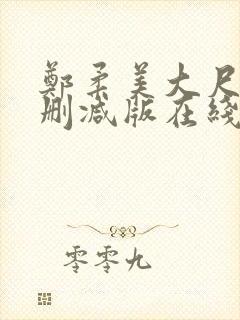 鄭柔美大尺
刪減版在綫
零零九